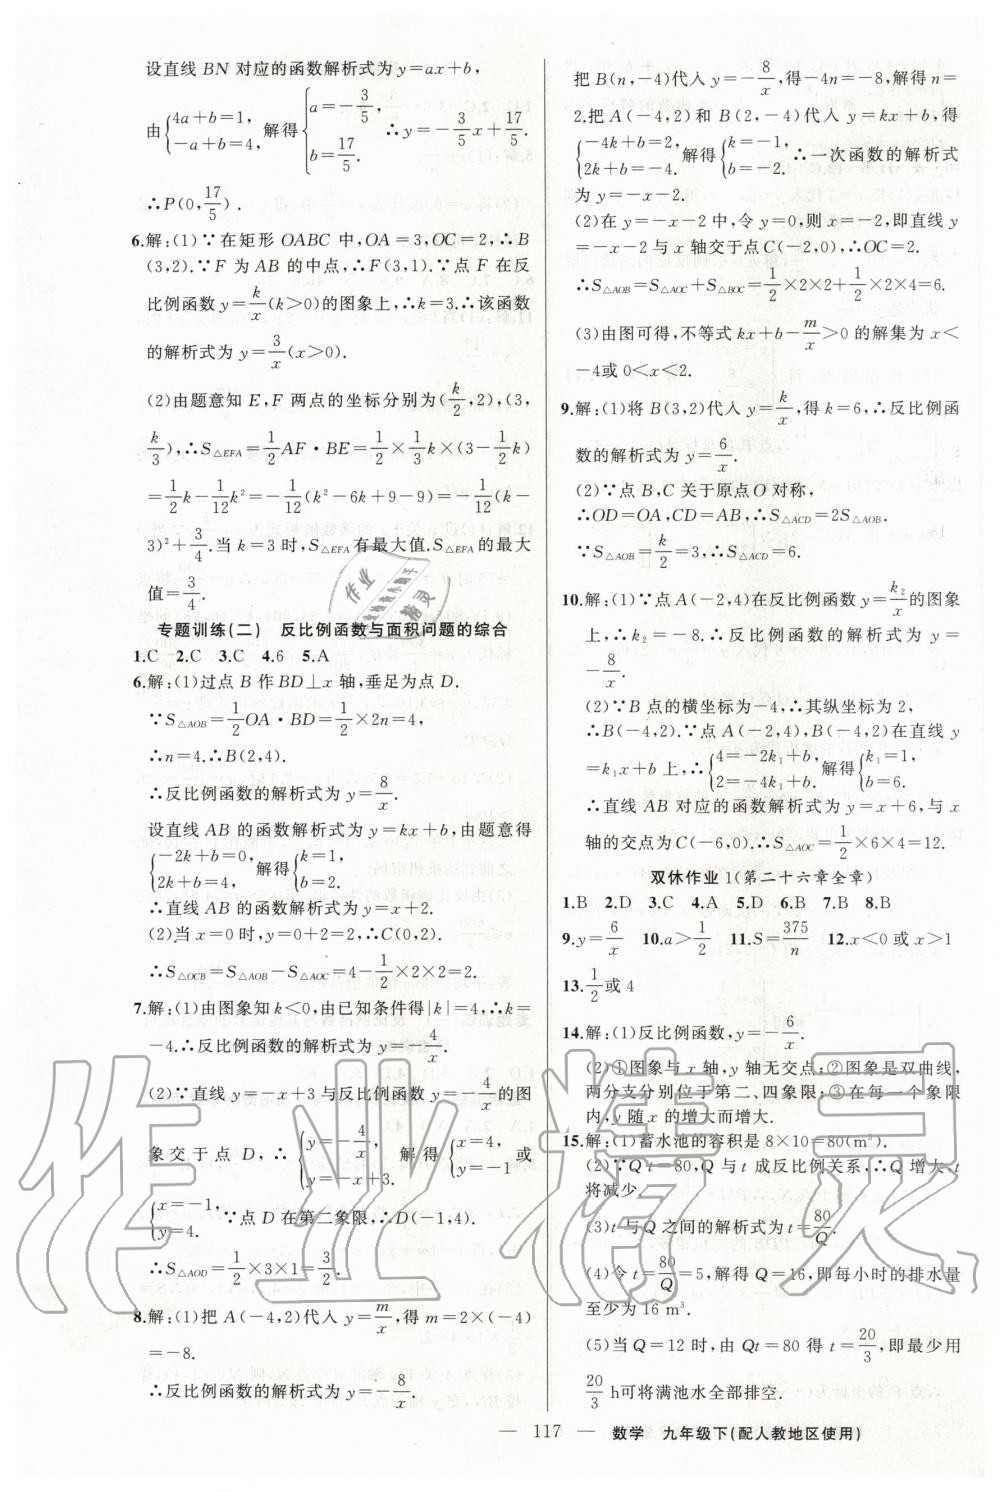 设直线BN对应的函数解析式为y=ax+b,
由{4a+b=1, -a+b=4, 解得{a=-3/5, b=17/5. ∴y=-3/5x+17/5.
∴P(0,17/5).
6.解:(1)∵在矩形OABC中,OA=3,OC=2,∴B
(3,2).∵F为AB的中点,∴F(3,1).∵点F在反
比例函数y=k/x(k>0)的图象上,∴k=3.∴该函数
的解析式为y=3/x(x>0).
(2)由题意知E,F两点的坐标分别为(k/2,2),(3,
k/3),∴S△EFA=1/2AF·BE=1/2×1/3k×(3-1/2k)
=1/2k-1/12k²=-1/12(k²-6k+9-9)=-1/12(k-
3)²+3/4.当k=3时,S△EFA有最大值.S△EFA的最大
值=3/4.
专题训练(二) 反比例函数与面积问题的综合
1.C 2.C 3.C 4.6 5.A
6.解:(1)过点B作BD⊥x轴,垂足为点D.
∵S△AOB=1/2OA·BD=1/2×2n=4,
∴n=4.∴B(2,4).
∴反比例函数的解析式为y=8/x.
设直线AB的函数解析式为y=kx+b,由题意得
{-2k+b=0, 2k+b=4, 解得{k=1, b=2.
∴直线AB的函数解析式为y=x+2.
(2)当x=0时,y=0+2=2,∴C(0,2).
∴S△OCB=S△AOB-S△AOC=4-1/2×2×2=2.
7.解:(1)由图象知k<0,由已知条件得|k|=4,∴k=
-4.∴反比例函数的解析式为y=-4/x.
(2)∵直线y=-x+3与反比例函数y=-4/x的图
象交于点D,∴{y=-4/x, y=-x+3. 解得{x=4, y=-1或
{x=-1, y=4. ∵点D在第二象限,∴D(-1,4).
∴S△AOD=1/2×3×1=3/2.
8.解:(1)把A(-4,2)代入y=m/x,得m=2×(-4)
=-8.
∴反比例函数的解析式为y=-8/x.
把B(n,-4)代入y=-8/x,得-4n=-8,解得n=
2.把A(-4,2)和B(2,-4)代入y=kx+b,得
{-4k+b=2, 2k+b=-4. 解得{k=-1, b=-2. ∴一次函数的解析式
为y=-x-2.
(2)在y=-x-2中,令y=0,则x=-2,即直线y
=-x-2与x轴交于点C(-2,0),∴OC=2.
∴S△AOB=S△AOC+S△BOC=1/2×2×2+1/2×2×4=6.
(3)由图可得,不等式kx+b-m/x>0的解集为x<
-4或0<x<2.
9.解:(1)将B(3,2)代入y=k/x,得k=6,∴反比例函
数的解析式为y=6/x.
(2)∵点B,C关于原点O对称,
∴OD=OA,CD=AB,∴S△ACD=2S△AOB.
∵S△AOB=k/2=3,∴S△ACD=6.
10.解:(1)∵点A(-2,4)在反比例函数y=k₂/x的图象
上,∴k₂=-8.∴反比例函数的解析式为y=
-8/x.
(2)∵B点的横坐标为-4,∴其纵坐标为2,
∴B(-4,2).∵点A(-2,4),B(-4,2)在直线y
=k₁x+b上,∴{4=-2k₁+b, 2=-4k₁+b. 解得{k₁=1, b=6.
∴直线AB对应的函数解析式为y=x+6,与x
轴的交点为C(-6,0).∴S△AOC=1/2×6×4=12.
双休作业1(第二十六章全章)
1.B 2.D 3.C 4.A 5.D 6.B 7.B 8.B
9.y=6/x 10.a>1/2 11.S=375/n 12.x<0或x>1
13.1/2或4
14.解:(1)反比例函数,y=-6/x.
(2)①图象与x轴,y轴无交点;②图象是双曲线,
两分支分别位于第二、四象限;③在每一个象限
内,y随x的增大而增大.
15.解:(1)蓄水池的容积是8×10=80(m³).
(2)∵Qt=80,Q与t成反比例关系,∴Q增大,t
将减少.
(3)t与Q之间的解析式为t=80/Q.
(4)令t=80/Q=5,解得Q=16,即每小时的排水量
至少为16 m³.
(5)当Q=12时,由Qt=80得t=20/3,即最少用
20/3 h可将满池水全部排空.
— 117 — 数学 九年级下(配人教地区使用)
作业精灵